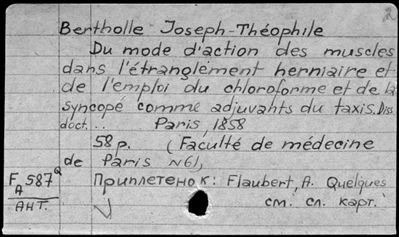 2
Bertholle Joseph-Théophile
Du mode d'action des muscles
dans l'étranglement herniaire et
de l'emploi du chloroforme et de la
syncope comme adjuvants du taxis. Diss.
doct... Paris, 1858
58 p. (Faculté de médecine
de Paris N61)
F A 587 a
АНТ.
Приплетено к: Flaubert, A. Quelques
см. сл. карт.